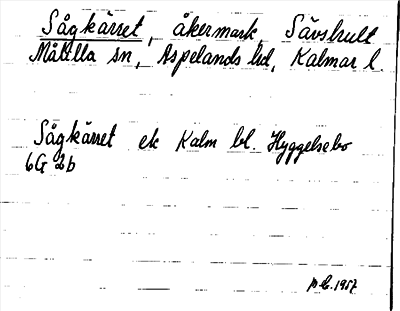 Sågkärret, åkermark, Sävshult
Målilla sn, Aspelands hd, Kalmar l.
Sågkärret ek Kalm bl. Hyggelsebo
6G 2b
1957